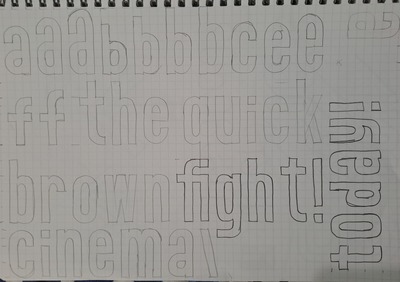 aaabbbbbcee
ff the quick
brown fight!
cinema
today!